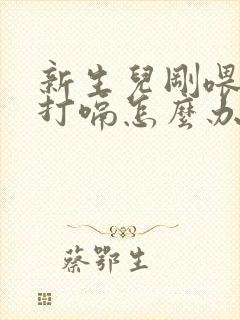 新生兒剛喂
打嗝怎麼办
蔡鄂生